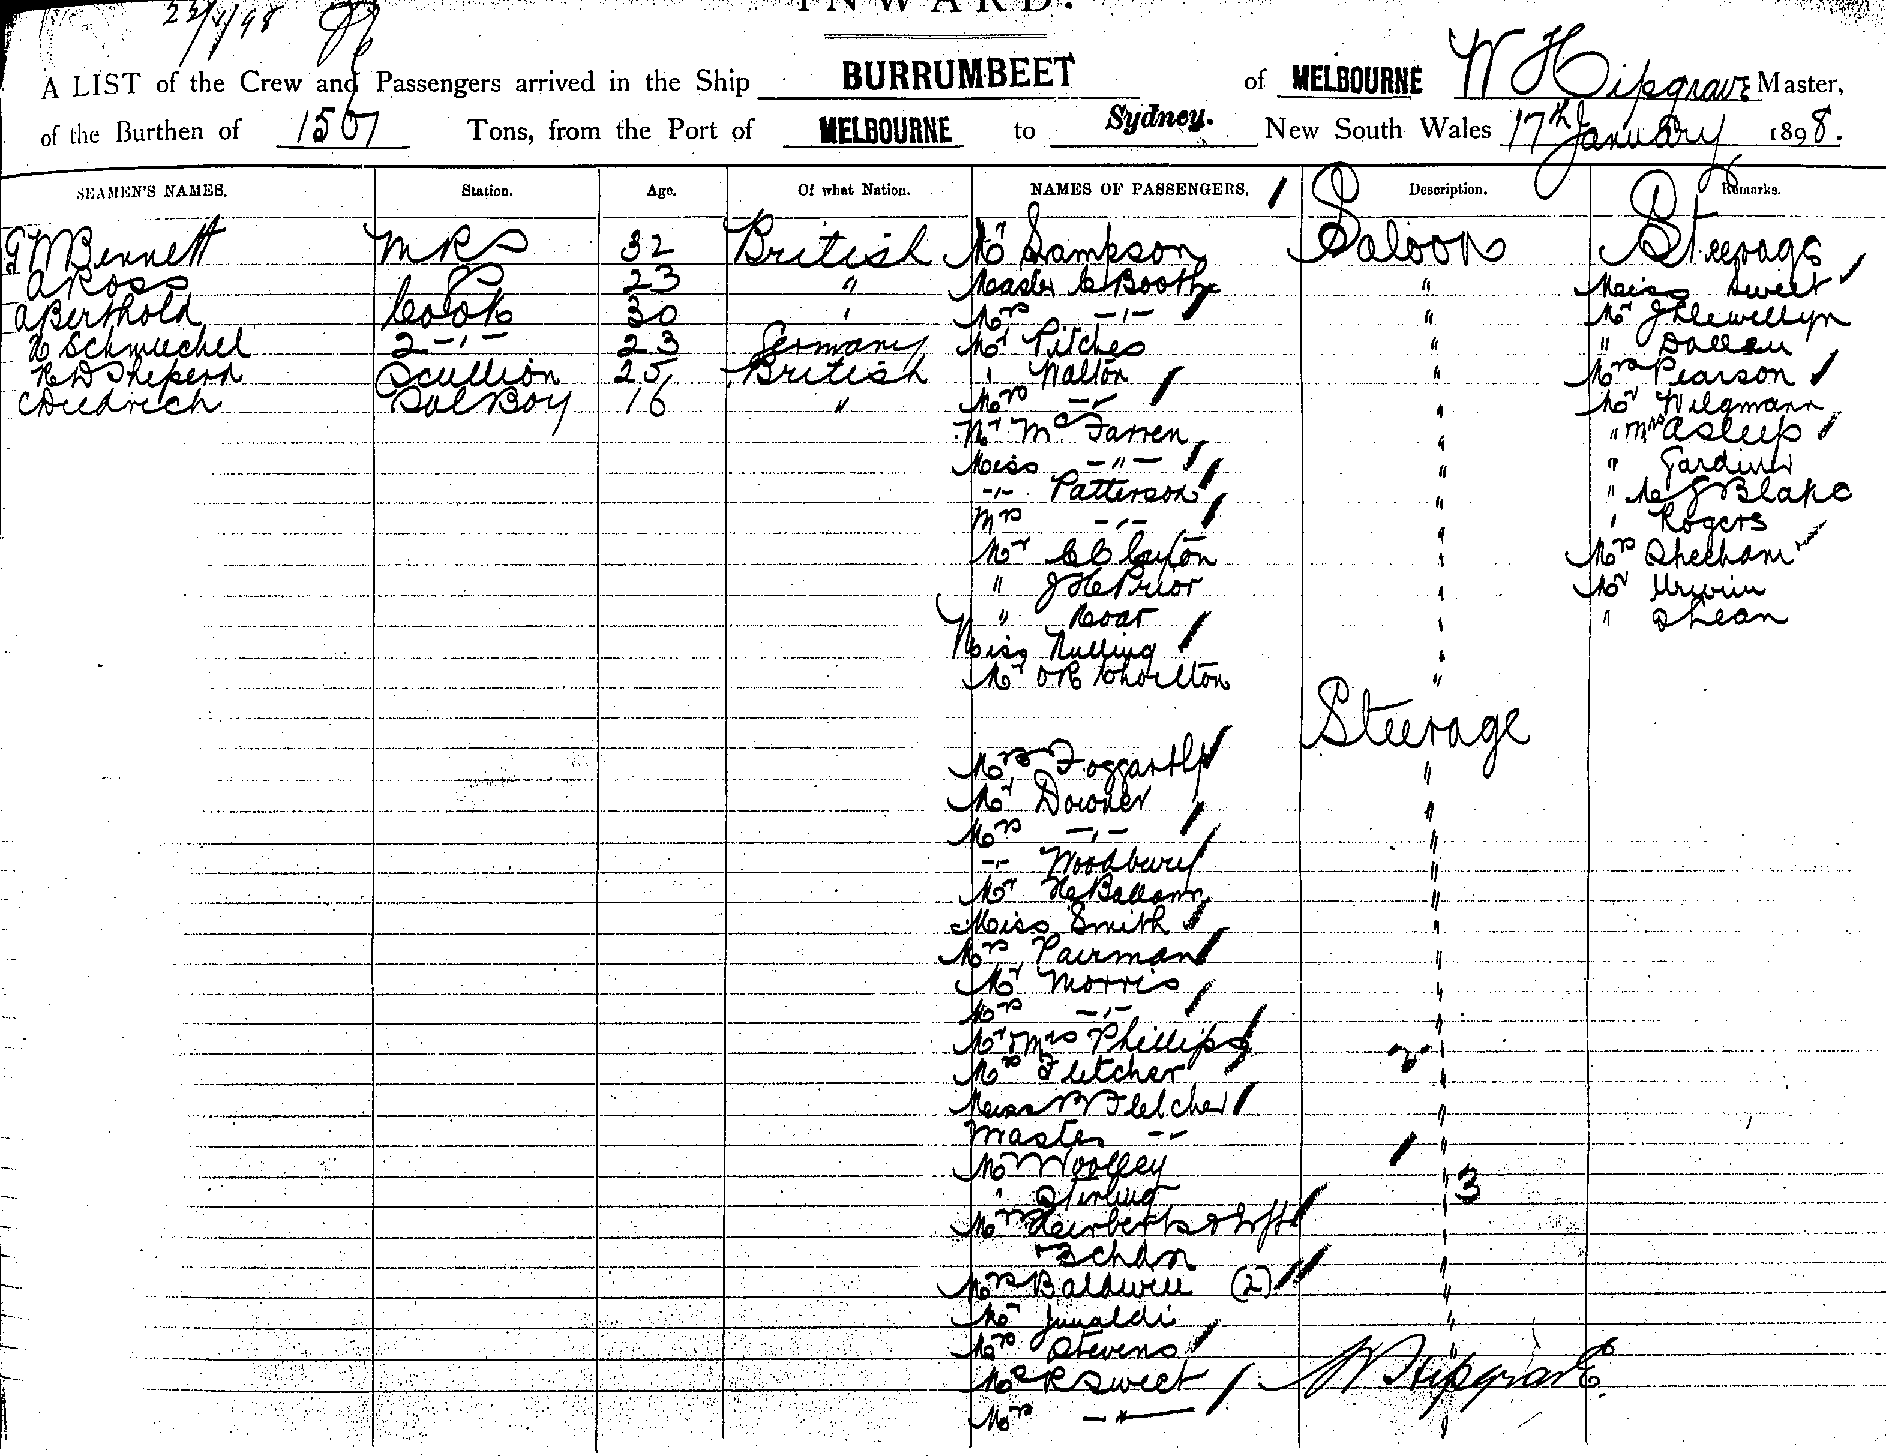 INWARD.
22/1/98
A LIST of the Crew and Passengers arrived in the Ship BURRUMBEET of MELBOURNE W Hipgrave Master,
of the Burthen of 1567 Tons, from the Port of MELBOURNE to Sydney. New South Wales 17th January 1898.
SEAMEN'S NAMES. Station. Age. Of what Nation. NAMES OF PASSENGERS. Description. Remarks.
G M Bennett M R S 32 British Mr Sampson Saloon Steerage
A Ross " 23 " Master C Booth " Miss Sweet
A Berthold Cook 30 " Mrs -"- " Mr J Llewellyn
H Schmuchel 2 -"- 23 Germany Mr Pitches "
R D Sheperd Scullion 25 British " Walton " Mrs Pearson
C Diedrich Sal Boy 16 " Mrs -"- " Mr Wilgmann
Mr McFarren " " Mrs Asleep
Miss -"- " " Gardiner
-"- Patterson " " Mc J Blake
Mrs -"- " " Rogers
Mr C Clayton " Mrs Sheeham
" J H Prior " Mr Urwin
" Hoar " " Shean
Miss Nulling "
Mr O R Chorlton "
Steerage
Mrs Foggartly "
Mr Downer "
Mrs -"- "
-"- Woodbury "
Mr "
Miss Smith "
Mrs Pairman "
Mr Morris "
Mrs -"- "
Mr & Mrs Phillips 2 "
Mrs Fletcher "
Miss Fletcher "
Master -"- "
Mr Woolley "
" Stirling " 3
Mrs Herbert & Inft "
3 chdn
Mrs Baldwin (2) "
Mr "
Mrs Stevens "
Mr R Sweet W Hipgrave
Mrs -"- "